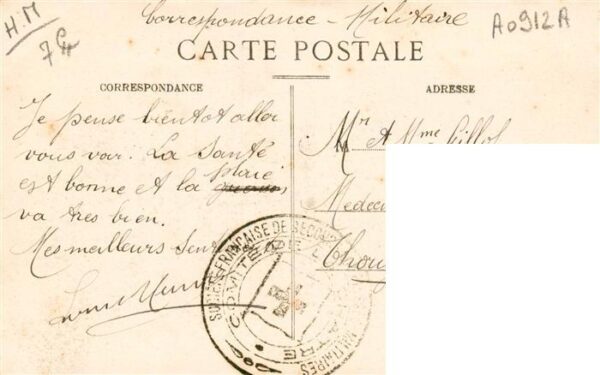 H.M
Correspondance - Militaire
A0912A
CARTE POSTALE
CORRESPONDANCE
ADRESSE
Je pense bientot aller
vous voir. La santé
est bonne et la plaie
va très bien.
Mes meilleurs
Mr et Mme
SOCIÉTÉ FRANÇAISE DE SECOURS
COMITÉ DE
MILITAIRES